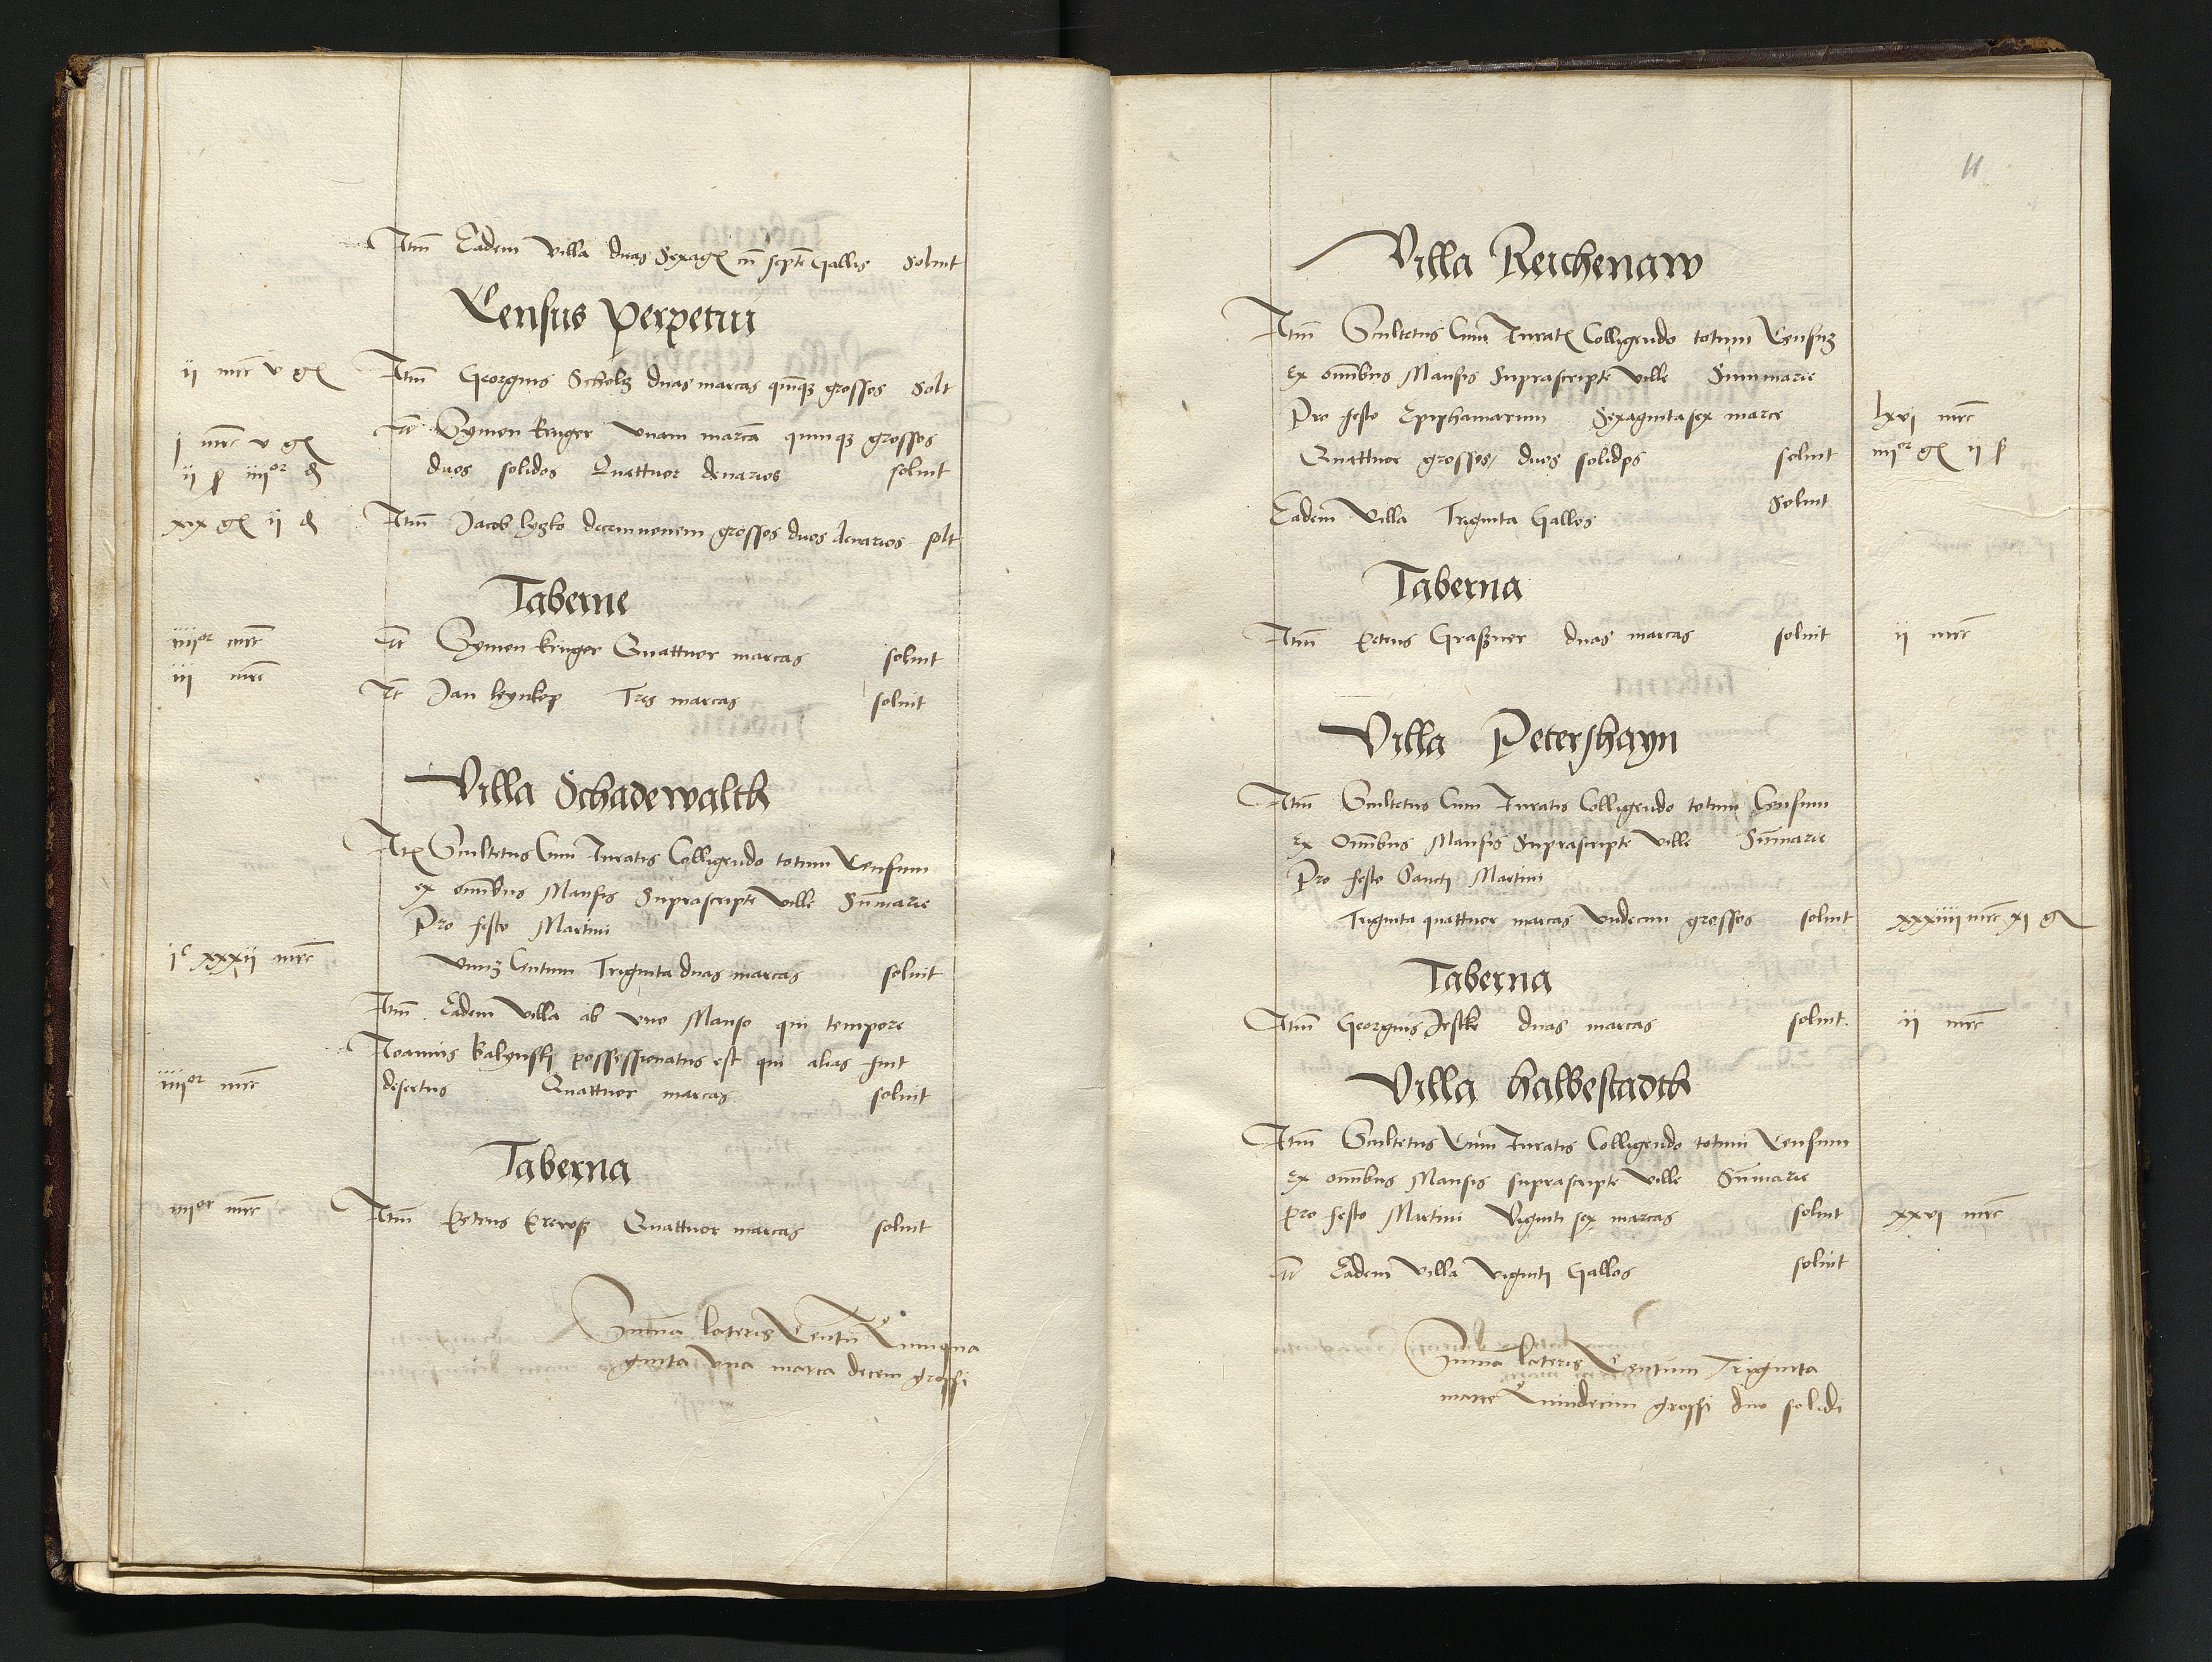 Itm Eadem villa duas Sexag cū septē Gallis Soluit
Census perpetui
ii mrc v gr Itm Georgius Scholtz duas marcas quinqz grossos Solt
j mrc v gr It Symon kruger vnam marcā quinqz grossos
ii ß iiiior d duos solidos Quattuor denarios soluit
xix gr ii d Itm Jacob lyzko decemnouem grossos duos denarios solt
Taberne
iiiior mrc It Symon kruger Quattuor marcas soluit
iii mrc It Jan leynkop Tres marcas soluit
Villa Schadewaldt
Itm Scultetus Cum Iuratis Colligendo totum Censum
ex omībus Mansis Suprascripte ville Sūmarie
Pro festo Martini
jc xxxii mrc vnuz Centum Triginta duas marcas soluit
Itm Eadem villa ab vno Manso qui tempore
Ioannis kalynski possessionatus est qui alias fuit
iiiior mrc desertus Quattuor marcas soluit
Taberna
iiiior mrc Itm petrus krewß Quattuor marcas soluit
Suma lateris Centū Quinqua
ginta vna marca decem grossi
11
Villa Reichenaw
Itm Scultetus Cum Iuratis Colligendo totum Censuz
ex omībus Mansis Suprascripte ville Summarie
Pro festo Epiphaniarum Sexagintasex marce lxvi mrc
Quattuor grossos duos solidos soluit iiiior gr ii ß
Eadem villa Triginta Gallos Soluit
Taberna
Itm petrus Graßner duas marcas soluit ii mrc
Villa Petershayn
Itm Scultetus Cum Iuratis Colligendo totum Censum
ex Omībus Mansis Suprascripte ville Sūmarie
Pro festo Sancti Martini
Triginta quattuor marcas vndecim grossos soluit xxxiiii mrc xi gr
Taberna
Itm Georgius Jeske duas marcas soluit ii mrc
Villa halbestadth
Itm Scultetus Cum Iuratis Colligendo totum Censum
ex omībus Mansis suprascripte ville Sūmarie
pro festo Martini Viginti sex marcas soluit xxvi mrc
It Eadem villa viginti Gallos soluit
Suma lateris Centum Triginta
marce Quindecim grossi duo solidi